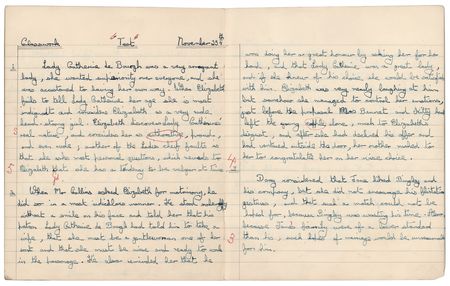 Classwork "Test" November 23rd
Lady Catherine de Bourgh was a very arrogant
lady, she wanted superiority over everyone, and she
was accustomed to having her own way. When Elizabeth
fails to tell Lady Catherine her age she is most
indignant and considers Elizabeth as a very rude,
head-strong girl. Elizabeth becomes Lady Catherine's
real nature, and considers her as proud,
and even rude; another of the Ladies chief faults is
that she asks most personal questions, which reveals to
5 Elizabeth that she has a tendency to be vulgar at times.
When Mr Collins asked Elizabeth for matrimony, he
did so in a most unfeeling manner. He stood
without a smile on his face and told her that his
patron Lady Catherine de Burgh had told him to take a
wife, that she must be a gentlewoman one of her
sort and that she must be wise and ready to
in the passage. He also reminded her that he
was doing her a great honour by asking her for her
hand, and that Lady Catherine, was a great lady,
and if she knew of his choice, she would be satisfied
with him. Elizabeth was very nearly laughing at him
but somehow she managed to control her emotions,
just before the proposal Miss Bennet and Kitty had
left the young alone, much to Elizabeth's
disgust, and after she had declined his offer and
had ventured outside the door, her mother rushed to
4 her to congratulate her on her wise choice.
Darcy considered that Jane liked Bingley and
his company, but she did not encourage his flirtatious
gestures, and that such a match could not be
hoped for, because Bingley was wasting his time. Also,
3 because Jane's family were of a lower standard
than his, such hopes of marriage would be
for him.